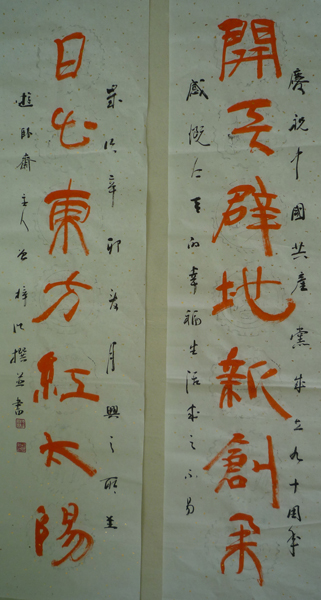 慶祝中國共產黨成立九十周年
開天辟地新創
感慨今天的幸福生活來之不易
歲次辛卯月興之所至
日出東方紅太陽
卧齋主人撰並書